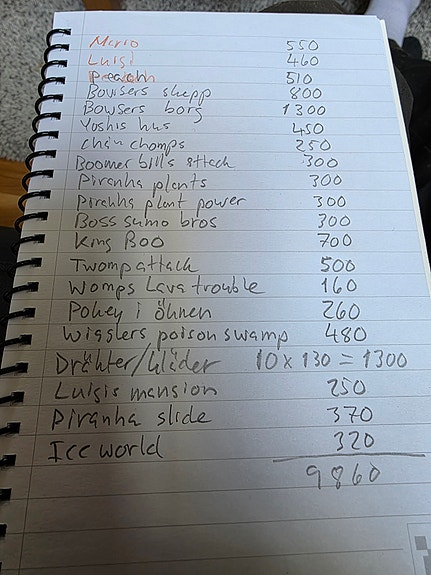 Mario 550
Luigi 460
Peach 510
Bowsers skepp 800
Bowsers borg 1300
Yoshis hus 450
Chain chomps 250
Boomer bills attack 300
Piranha plants 300
Piranha plant power 300
Boss sumo bros 300
King Boo 700
Twomp attack 500
Womps Lava trouble 160
Pokey i öknen 260
Wigglers poison swamp 480
Dräkter/kläder 10 x 130 = 1300
Luigis mansion 250
Piranha slide 370
Ice world 320
9860